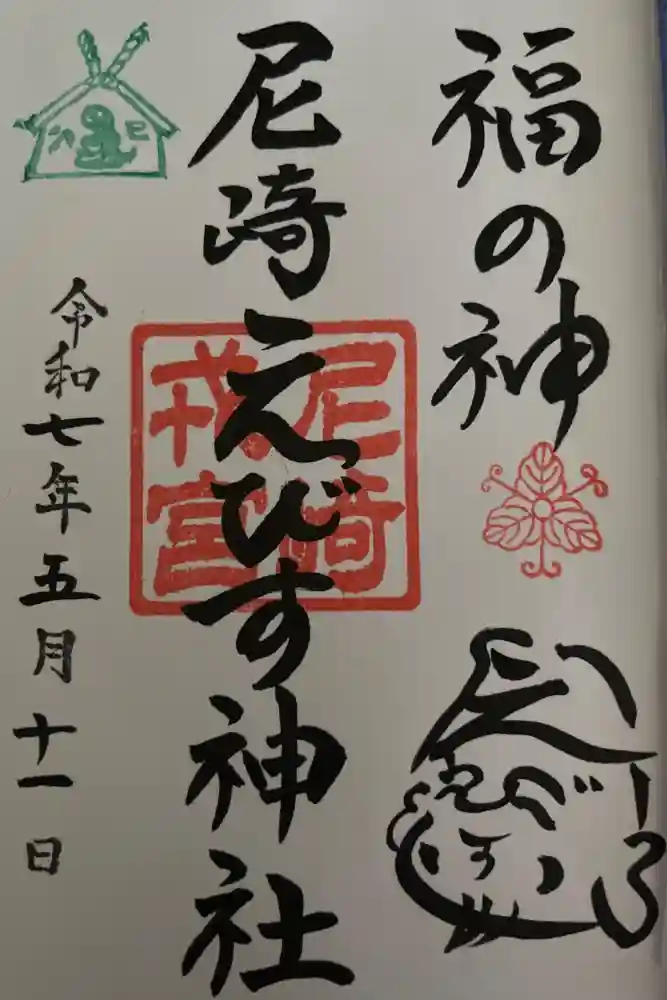 福の神
えびす
尼崎えびす神社
尼崎
戎宮
令和七年五月十一日
巳